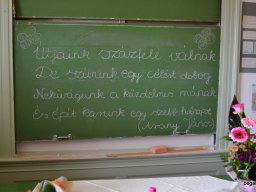 Útjaink százfelé válnak
De szívünk egy célért dobog
Nekivágunk a küzdelmes mának
És épít karunk egy szebb holnapot
(Arany János)